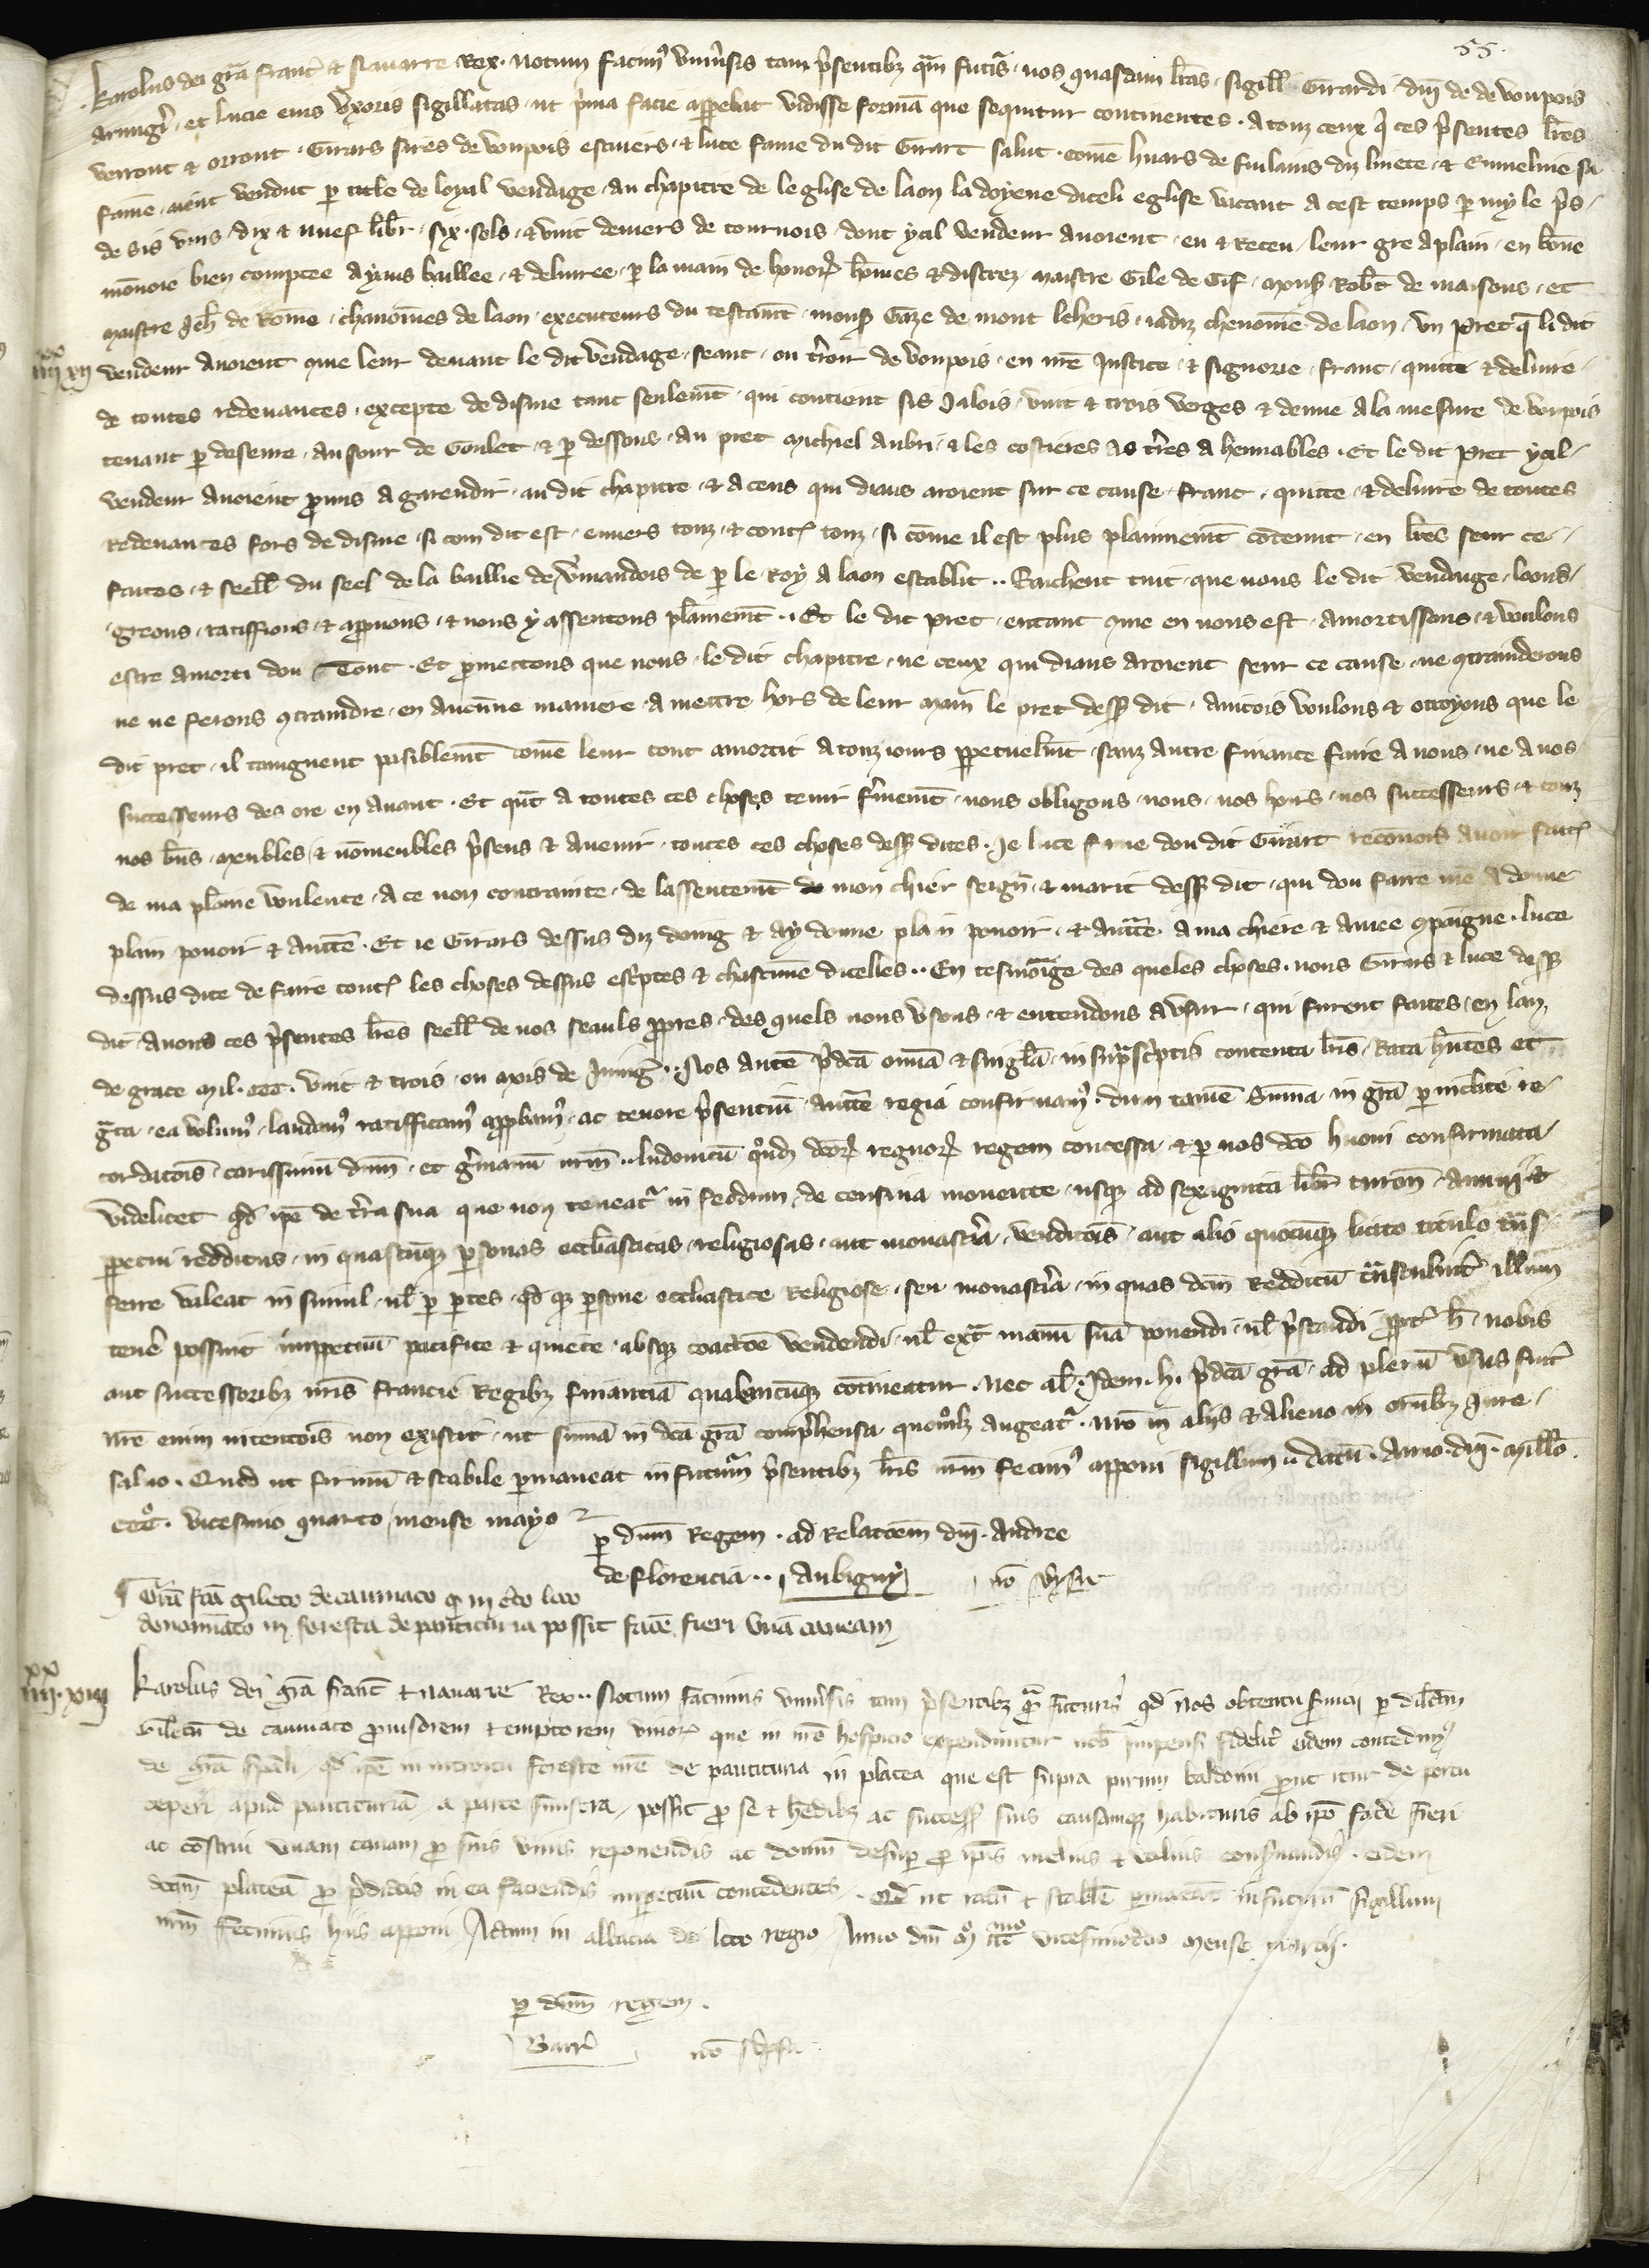 55.
Karolus dei gra Franc et Navarre Rex. Notum facim9 universis tam presentibz qm futuris. nos quasdam lras. sigill Girardi dni de de Voupois
armigeri. et Lucie eius uxoris sigillatas. ut prima facie apparebat vidisse formā que sequitur continentes. A touz ceux qi ces presentes lres
verront et orront. Girars sires de Voupois escuiers. et Luce fame du dit Girart salut. come Huars de diz Livete. et Emmeline sa
fame. aient vendut par title de loyal vendage. au chapitre de leglise de Laon la doyene diceli eglise vacant a cest temps par my le pris.
de sis vins. dix et nuef libr. six. sols. et vuit deniers de tournois. dont ycil vendeur avoient. eu et receu. leur gre aplain. en bone
monnoie bien comptee a yaus baillee. et delivree. par la main de honor homes et discrez. maistre Gile de Gif. mons Robt de maisons. et
maistre Jeh de Rome. chanoines de Laon. executeurs du testamt. mons Gaze de mont leheris. iadiz chenoine de Laon. un pret q li dit
IIII xx XII
vendeur avoient que leur devant le dit vendage. seant. ou terroir de Voupois. en nre justice. et signorie. franc. quitte et delivre.
de toutes redevances. excepte de disme tant seulemt. qui contient sis jalois. vint et trois verges et demie a la mesure de Voupois
tenant par deseure. au four de Goulet. et par dessouz. au pret Michiel Aubri. et les costieres as tres a hennables. Et le dit pret ycil.
vendeur avoient promis a garendir. au dit chapitre. et a ceus qui diaus aroient sur ce cause. franc. quitte. et delivre de toutes
redevances fors de disme. si com dit est. envers touz. et cont touz. si come il est plus plainnemt contenut. en lres seur ce.
faites. et seell du seel de la baillie de Vmandois de par le Roy a Laon establit.. Sachent tuit. que nous le dit vendage. loons.
greons. ratiffions. et approuons. et nous y assentons plainemt.. Et le dit pret. entant que en nous est. amortissons. et voulons
estre amorti dou tout. Et prmettons que nous. le dit chapitre. ne ceux qui diaus aroient seur ce cause. ne contrainderons
ne ne ferons contraindre. en aucune maniere. a mettre hors de leur main le pret dess dit. aincois voulons et otroyons que le
dit pret. il taingnent paisiblemt come leur tout amortit a touz iours perpetuelmt. sanz autre finance faire a nous. ne a nos
successeurs des ore en avant. Et qnt a toutes ces choses tenir fermemt. nous obligons. nous. nos hoirs. nos successeurs. et touz
nos bns. meubles et nonmeubles presens et avenir. toutes ces choses dess dites. Je Luce fame dou dit Girart reconois avoir faites
de ma plaine voulente. a ce non contrainte. de lassentemt mon chier seign. et marit dess dit. qui dou faire me a donne
plain pouoir et auctte. Et ie Girars dessus diz doing et ay donne plain pouoir. et auctte a ma chiere et amee compaigne. Luce
dessus dite de faire toutes les choses dessus escriptes et chascune dicelles.. En tesmoige des queles choses. nous Girars et Luce dess
dit. avons ces presentes lres seell de nos seauls propres. des quels nous usons. et entendons a user. qui furent faites. en lan
de grace mil. ccc. vint et trois. ou mois de Juing.. Nos autē predca omia et singla. in suprascriptis contenta lris. rata hntes et
grata. ea volum9. laudam9 ratifficam9 approbam9. ac tenore presentiū. auctte regia confirmam9. dum tamē suma in gra per inclite re.
cordatois. carissimū dnm. et germanū nrm.. Ludovicū qodz dcor regnor regem concessa. et per nos dco Huoni confirmata.
videlicet qd ipe de terra sua que non teneatr in feodum. de censiva movente. usqz ad sexaginta libr turon. annui et
perpetui redditus. in quascūqz psonas eccliasticas. religiosas. aut monasteria. venditois. aut alio quocūqz licito titulo tns.
ferre valeat in simul. ul per partes. qd qz psone eccliastice religiose. seu monasteria. in quas dcm redditū transtulerit illum
tene possint inppetuū pacifice et quiete. absqz coactoe vendendi. ul extra manū suā ponendi. ul prestandi propt h. nobis
aut successoribz nris Francie Regibz financiā qualemcūqz. Nec al. Idem. H. predca gra. ad plenū usus fuit
nre enim intentois non existit. ut summa in dca gra comprehensa. quomolz augeatr. nro in aliis et alieno in omibz jure.
salvo. Quod ut firmū et stabile permaneat in futurm presentibz lris nrm fecim9 apponi sigillum. Datū. Anno. dni. millo.
cccº. vicesimo quarto mense mayo
per dnm Regem. ad relatoem dni. Andree
de Florencia.. Aubigny
Gra fca Gileto de Caumaco q in cto loco
denominato in foresta de Pauticuria possit face fieri unā caveam
IIII xx XIII
Karolus dei gra Franc et Navarre Rex.. Notum facimus universis tam presentibz qm futuris qd nos obtentu servicii per dilcm
Giletū de Caumaco provisorem et emptorem vinor que in nro hospicio expenduntur nob impensi fidelit eidem concedim9
de gra spali. qd ipe in introitu foreste nre de Pauticuria in platea que est supra pirum Baldoini prout itur de portu
 apud Pauticuriā. a parte sinistra. possit pro se et hedibz ac success suis causamqz habituris ab ipo face fieri
ac construi unam cavam pro suis vinis reponendis ac domū desuper pro ipis melius et tutius conservandis. eidem
dcam plateā pro predictis in ea faciendis inperpetuū concedentes. Qd ut ratū et stabile permaneat in futurū sigillum
nrm fecimus hiis apponi. Actum in abbacia de loco regio Anno dni mº ccc mo vicesimodco mense marcii.
per dnm regem.
Barr